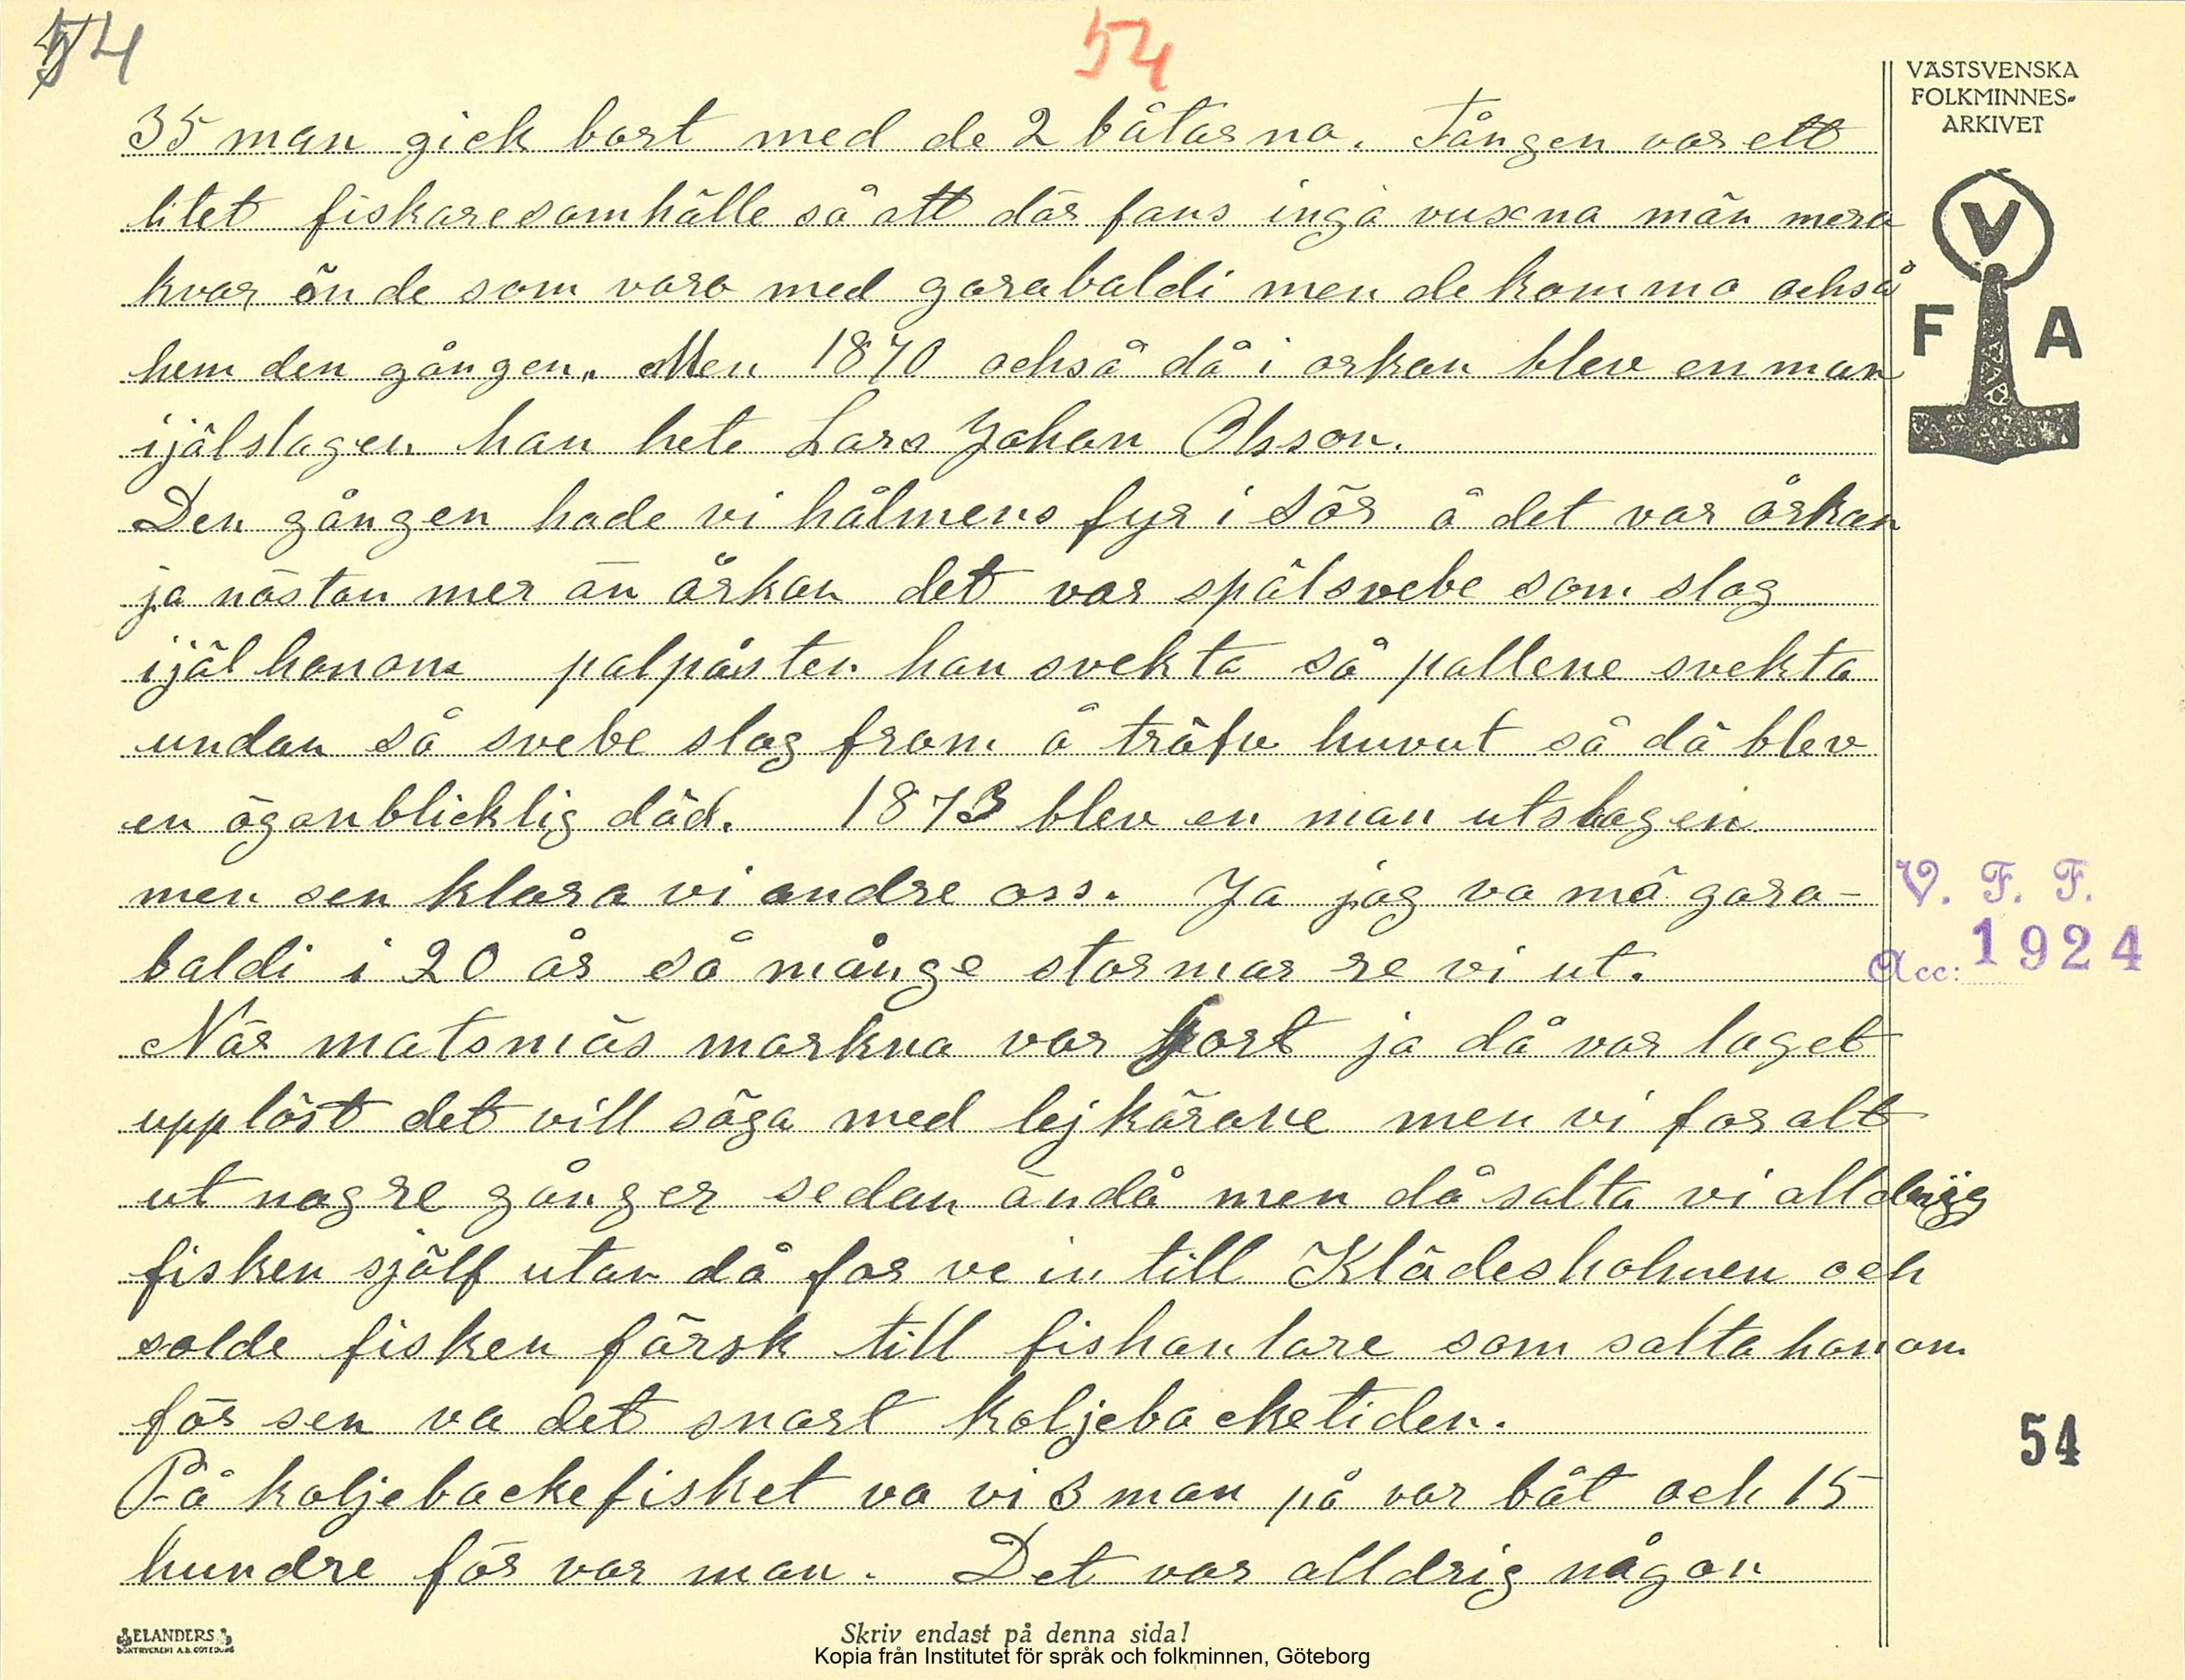 54
54
VÄSTSVENSKA
FOLKMINNES-
ARKIVET
V
F A
35 man gick bort med de 2 båtarna. Tången var ett
litet fiskaresamhälle så att där fans inga vuxna män mera
kvar än de som voro med garabaldi men de komma också
hem den gången. Men 1870 också då i orkan blev en man
ijälslagen han hete Lars Johan Olsson.
Den gången hade vi hålmens fyr i Sör å det var årkan
ja nästan mer än årkan det var spälsvebe som slog
ijäl honom palpåsten han svekta så pallene svekta
undan så svebe slog fram å träfv huvut så då blev
en ögonblicklig död. 1873 blev en man utslagen
men sen klara vi andre oss. Ja jag va mä gara-
baldi i 20 år så månge stormar re vi ut.
När matsmäs markna var kort ja då var laget
upplöst det vill säga med lejkärane men vi for alt
ut nogre gånger sedan ändå men då salta vi alldrig
fisken själf utan då for ve in till Klädesholmen och
solde fisken färsk till fishanlare som salta honom
för sen va det snart koljebacketiden.
På koljebackefisket va vi 3 man på var båt och 15
hundre för var man. Det var alldrig någon
V. F. F.
Acc: 1924
54
ELANDERS
BOKTRYCKERI A.B. GÖTEBORG
Skriv endast på denna sida!
Kopia från Institutet för språk och folkminnen, Göteborg